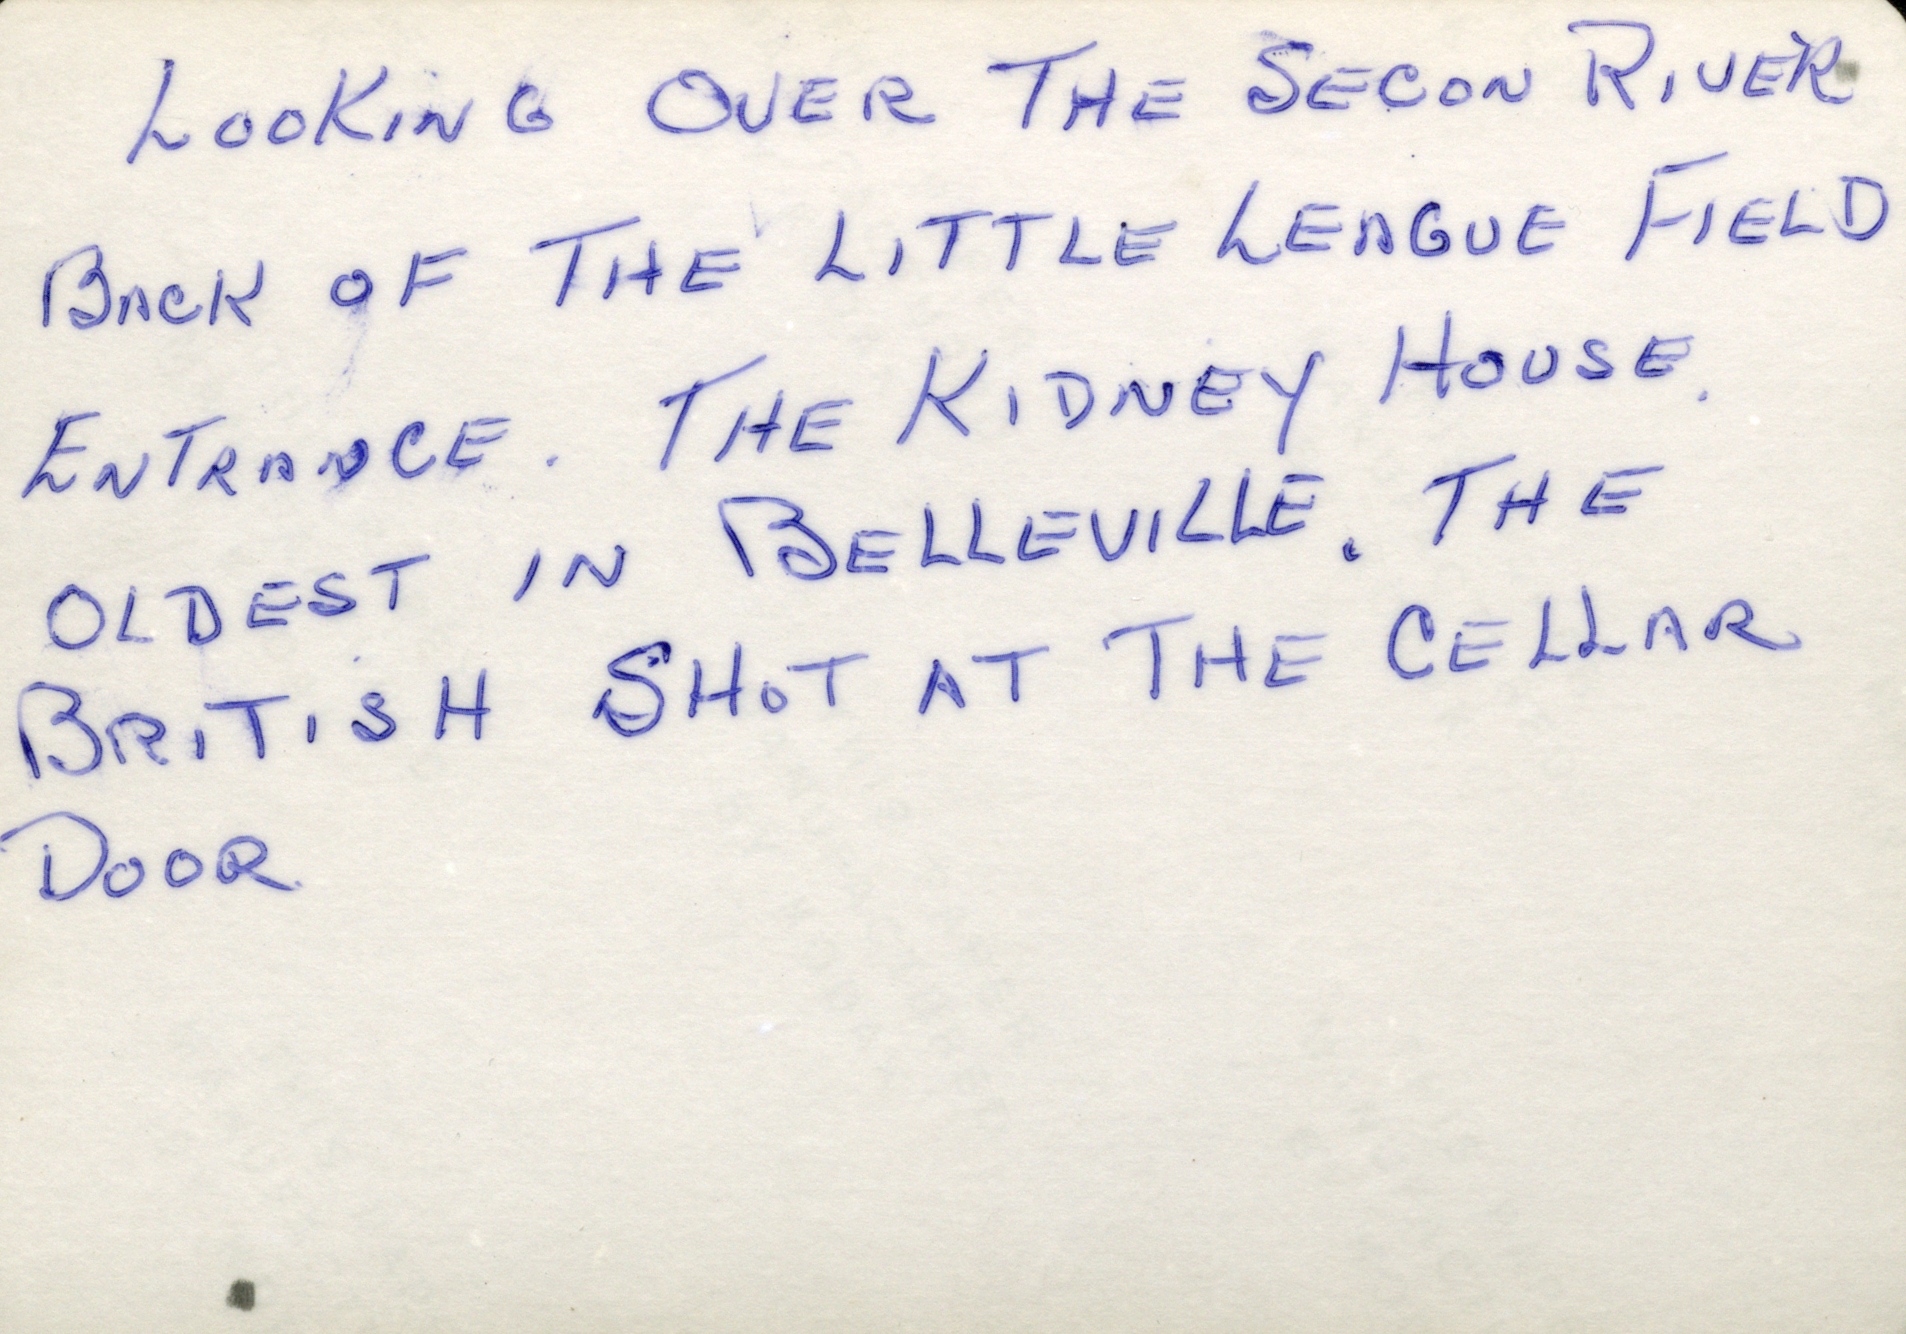 LOOKING OVER THE SECON RIVER
BACK OF THE LITTLE LEAGUE FIELD
ENTRANCE. THE KIDNEY HOUSE.
OLDEST IN BELLEVILLE. THE
BRITISH SHOT AT THE CELLAR
DOOR